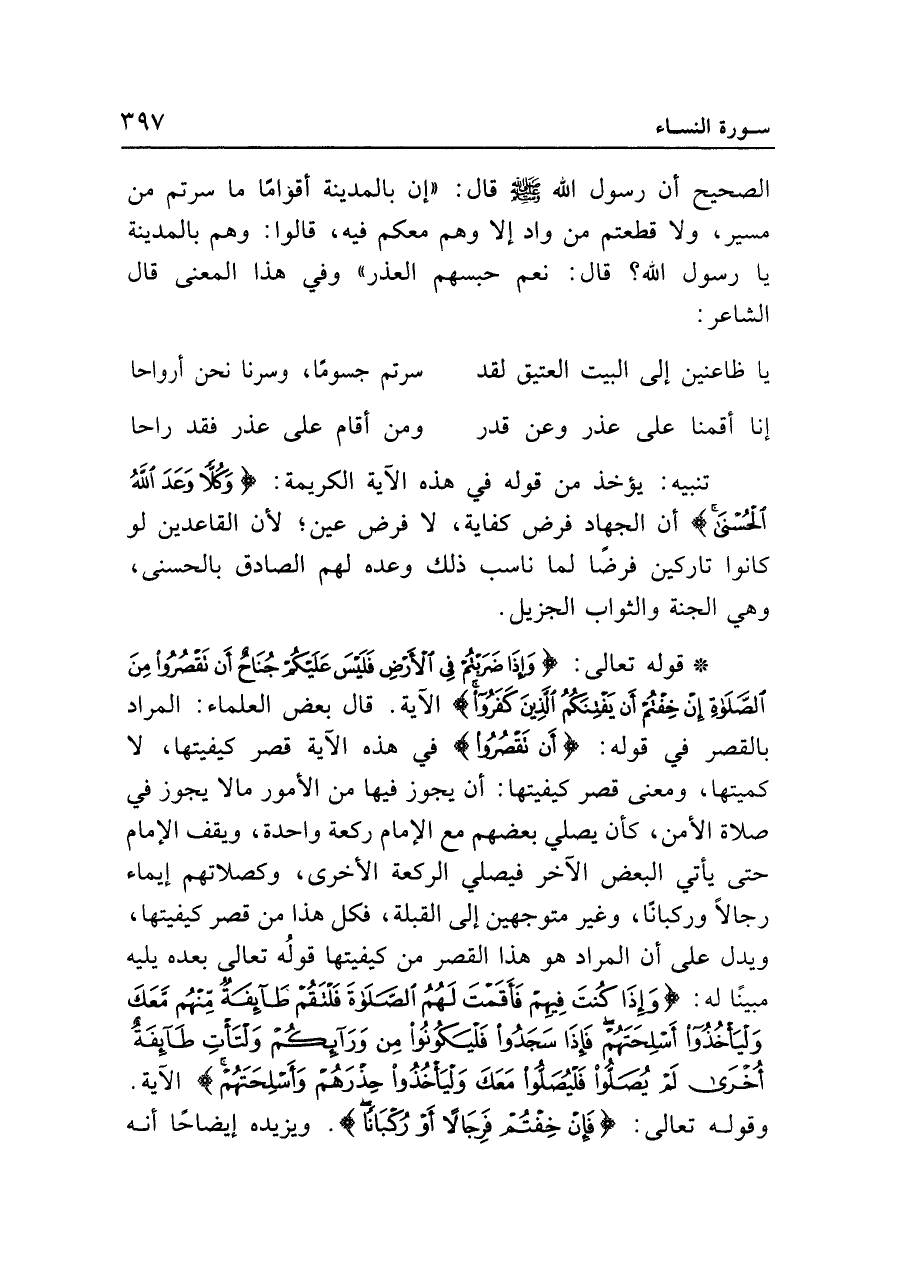 سورة النساء ٣٩٧
الصحيح أن رسول الله ﷺ قال: «إن بالمدينة أقوامًا ما سرتم من
مسير، ولا قطعتم من واد إلا وهم معكم فيه، قالوا: وهم بالمدينة
يا رسول الله؟ قال: نعم حبسهم العذر» وفي هذا المعنى قال
الشاعر:
يا ظاعنين إلى البيت العتيق لقد سرتم جسومًا، وسرنا نحن أرواحا
إنا أقمنا على عذر وعن قدر ومن أقام على عذر فقد راحا
تنبيه: يؤخذ من قوله في هذه الآية الكريمة: ﴿وَكُلًّا وَعَدَ ٱللَّهُ
ٱلْحُسْنَىٰۚ﴾ أن الجهاد فرض كفاية، لا فرض عين؛ لأن القاعدين لو
كانوا تاركين فرضًا لما ناسب ذلك وعده لهم الصادق بالحسنى،
وهي الجنة والثواب الجزيل.
* قوله تعالى: ﴿وَإِذَا ضَرَبْتُمْ فِي ٱلْأَرْضِ فَلَيْسَ عَلَيْكُمْ جُنَاحٌ أَن نَقْصُرُوا۟ مِنَ
ٱلصَّلَوٰةِ إِنْ خِفْتُمْ أَن يَفْتِنَكُمُ ٱلَّذِينَ كَفَرُوٓا۟ۚ﴾ الآية. قال بعض العلماء: المراد
بالقصر في قوله: ﴿أَن نَقْصُرُوا۟﴾ في هذه الآية قصر كيفيتها، لا
كميتها، ومعنى قصر كيفيتها: أن يجوز فيها من الأمور مالا يجوز في
صلاة الأمن، كأن يصلي بعضهم مع الإمام ركعة واحدة، ويقف الإمام
حتى يأتي البعض الآخر فيصلي الركعة الأخرى، وكصلاتهم إيماء
رجالاً وركبانًا، وغير متوجهين إلى القبلة، فكل هذا من قصر كيفيتها،
ويدل على أن المراد هو هذا القصر من كيفيتها قولُه تعالى بعده يليه
مبينًا له: ﴿وَإِذَا كُنتَ فِيهِمْ فَأَقَمْتَ لَهُمُ ٱلصَّلَوٰةَ فَلْتَقُمْ طَآئِفَةٌ مِّنْهُم مَّعَكَ
وَلْيَأْخُذُوٓا۟ أَسْلِحَتَهُمْۖ فَإِذَا سَجَدُوا۟ فَلْيَكُونُوا۟ مِن وَرَآئِكُمْ وَلْتَأْتِ طَآئِفَةٌ
أُخْرَىٰ لَمْ يُصَلُّوا۟ فَلْيُصَلُّوا۟ مَعَكَ وَلْيَأْخُذُوا۟ حِذْرَهُمْ وَأَسْلِحَتَهُمْۚ﴾ الآية.
وقوله تعالى: ﴿فَإِنْ خِفْتُمْ فَرِجَالًا أَوْ رُكْبَانًاۖ﴾. ويزيده إيضاحًا أنه